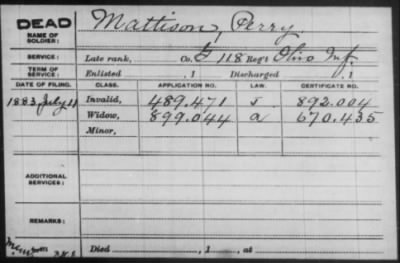 DEAD
NAME OF SOLDIER: Mattison, Perry
SERVICE: Late rank, Co. G 118 Reg't Ohio Inf.
TERM OF SERVICE: Enlisted , 1 Discharged , 1
DATE OF FILING. CLASS. APPLICATION NO. LAW. CERTIFICATE NO.
1883 July 11 Invalid, 489.471 892.004
Widow, 899.044 a 670.435
Minor,
ADDITIONAL SERVICES:
REMARKS:
Died , 1 , at